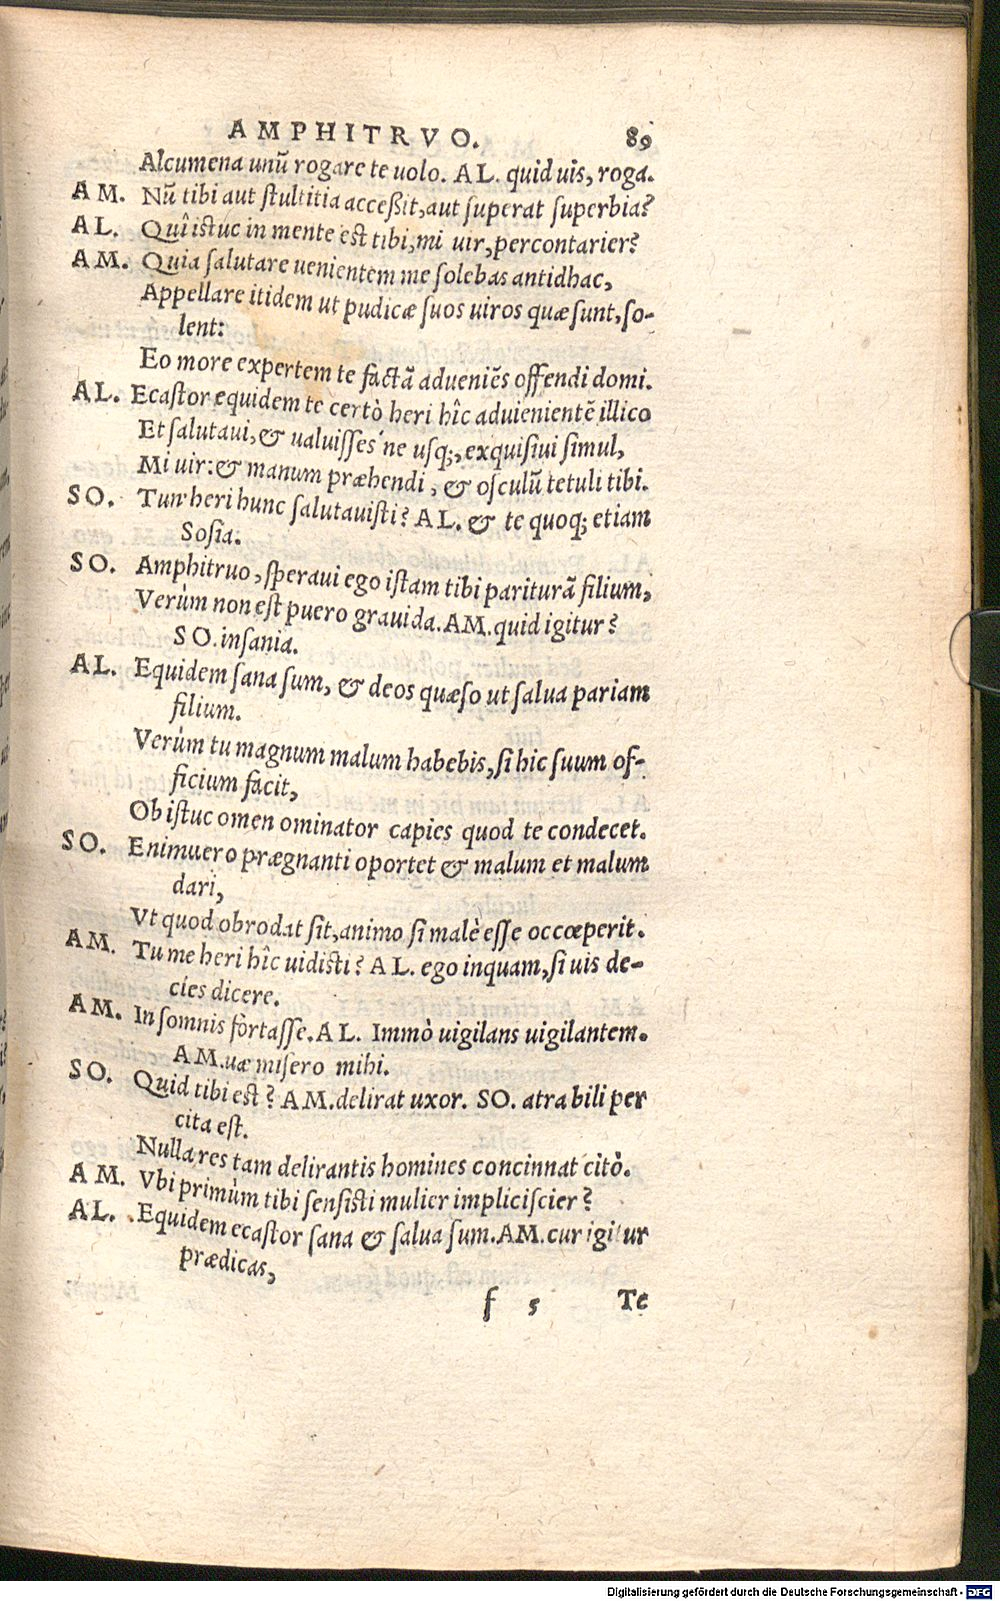 AMPHITRVO. 89
Alcumena unũ rogare te uolo. AL. quid uis, roga.
AM. Nũ tibi aut ſtultitia acceßit, aut ſuperat ſuperbia?
AL. Quî iſtuc in mente eſt tibi, mi uir, percontarier?
AM. Quia ſalutare uenientem me ſolebas antidhac,
Appellare itidem ut pudicæ ſuos uiros quæ ſunt, ſo-
lent:
Eo more expertem te factã adueniẽs offendi domi.
AL. Ecaſtor equidem te certò heri hîc aduenientẽ illico
Et ſalutaui, & ualuiſſes'ne uſq;, exquiſiui ſimul,
Mi uir: & manum præhendi, & oſculũ tetuli tibi.
SO. Tun' heri hunc ſalutauiſti? AL. & te quoq; etiam
Soſia.
SO. Amphitruo, ſperaui ego iſtam tibi pariturã filium,
Verùm non eſt puero grauida. AM. quid igitur?
SO. inſania.
AL. Equidem ſana ſum, & deos quæſo ut ſalua pariam
filium.
Verùm tu magnum malum habebis, ſi hic ſuum of-
ficium facit,
Ob iſtuc omen ominator capies quod te condecet.
SO. Enimuero prægnanti oportet & malum et malum
dari,
Vt quod obrodat ſit, animo ſi malè eſſe occœperit.
AM. Tu me heri hîc uidiſti? AL. ego inquam, ſi uis de-
cies dicere.
AM. In ſomnis fortaſſe. AL. Immò uigilans uigilantem.
AM. uæ miſero mihi.
SO. Quid tibi eſt? AM. delirat uxor. SO. atra bili per
cita eſt.
Nulla res tam delirantis homines concinnat citò.
AM. Vbi primùm tibi ſenſiſti mulier impliciſcier?
AL. Equidem ecaſtor ſana & ſalua ſum. AM. cur igitur
prædicas,
f 5 Te
Digitalisierung gefördert durch die Deutsche Forschungsgemeinschaft - DFG